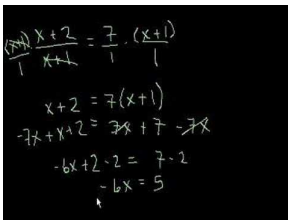 (x+1)/1 x+2/x+1 = 7/1 · (x+1)/1
x+2 = 7(x+1)
-7x+x+2 = 7x + 7 - 7x
-6x+2-2 = 7-2
-6x = 5